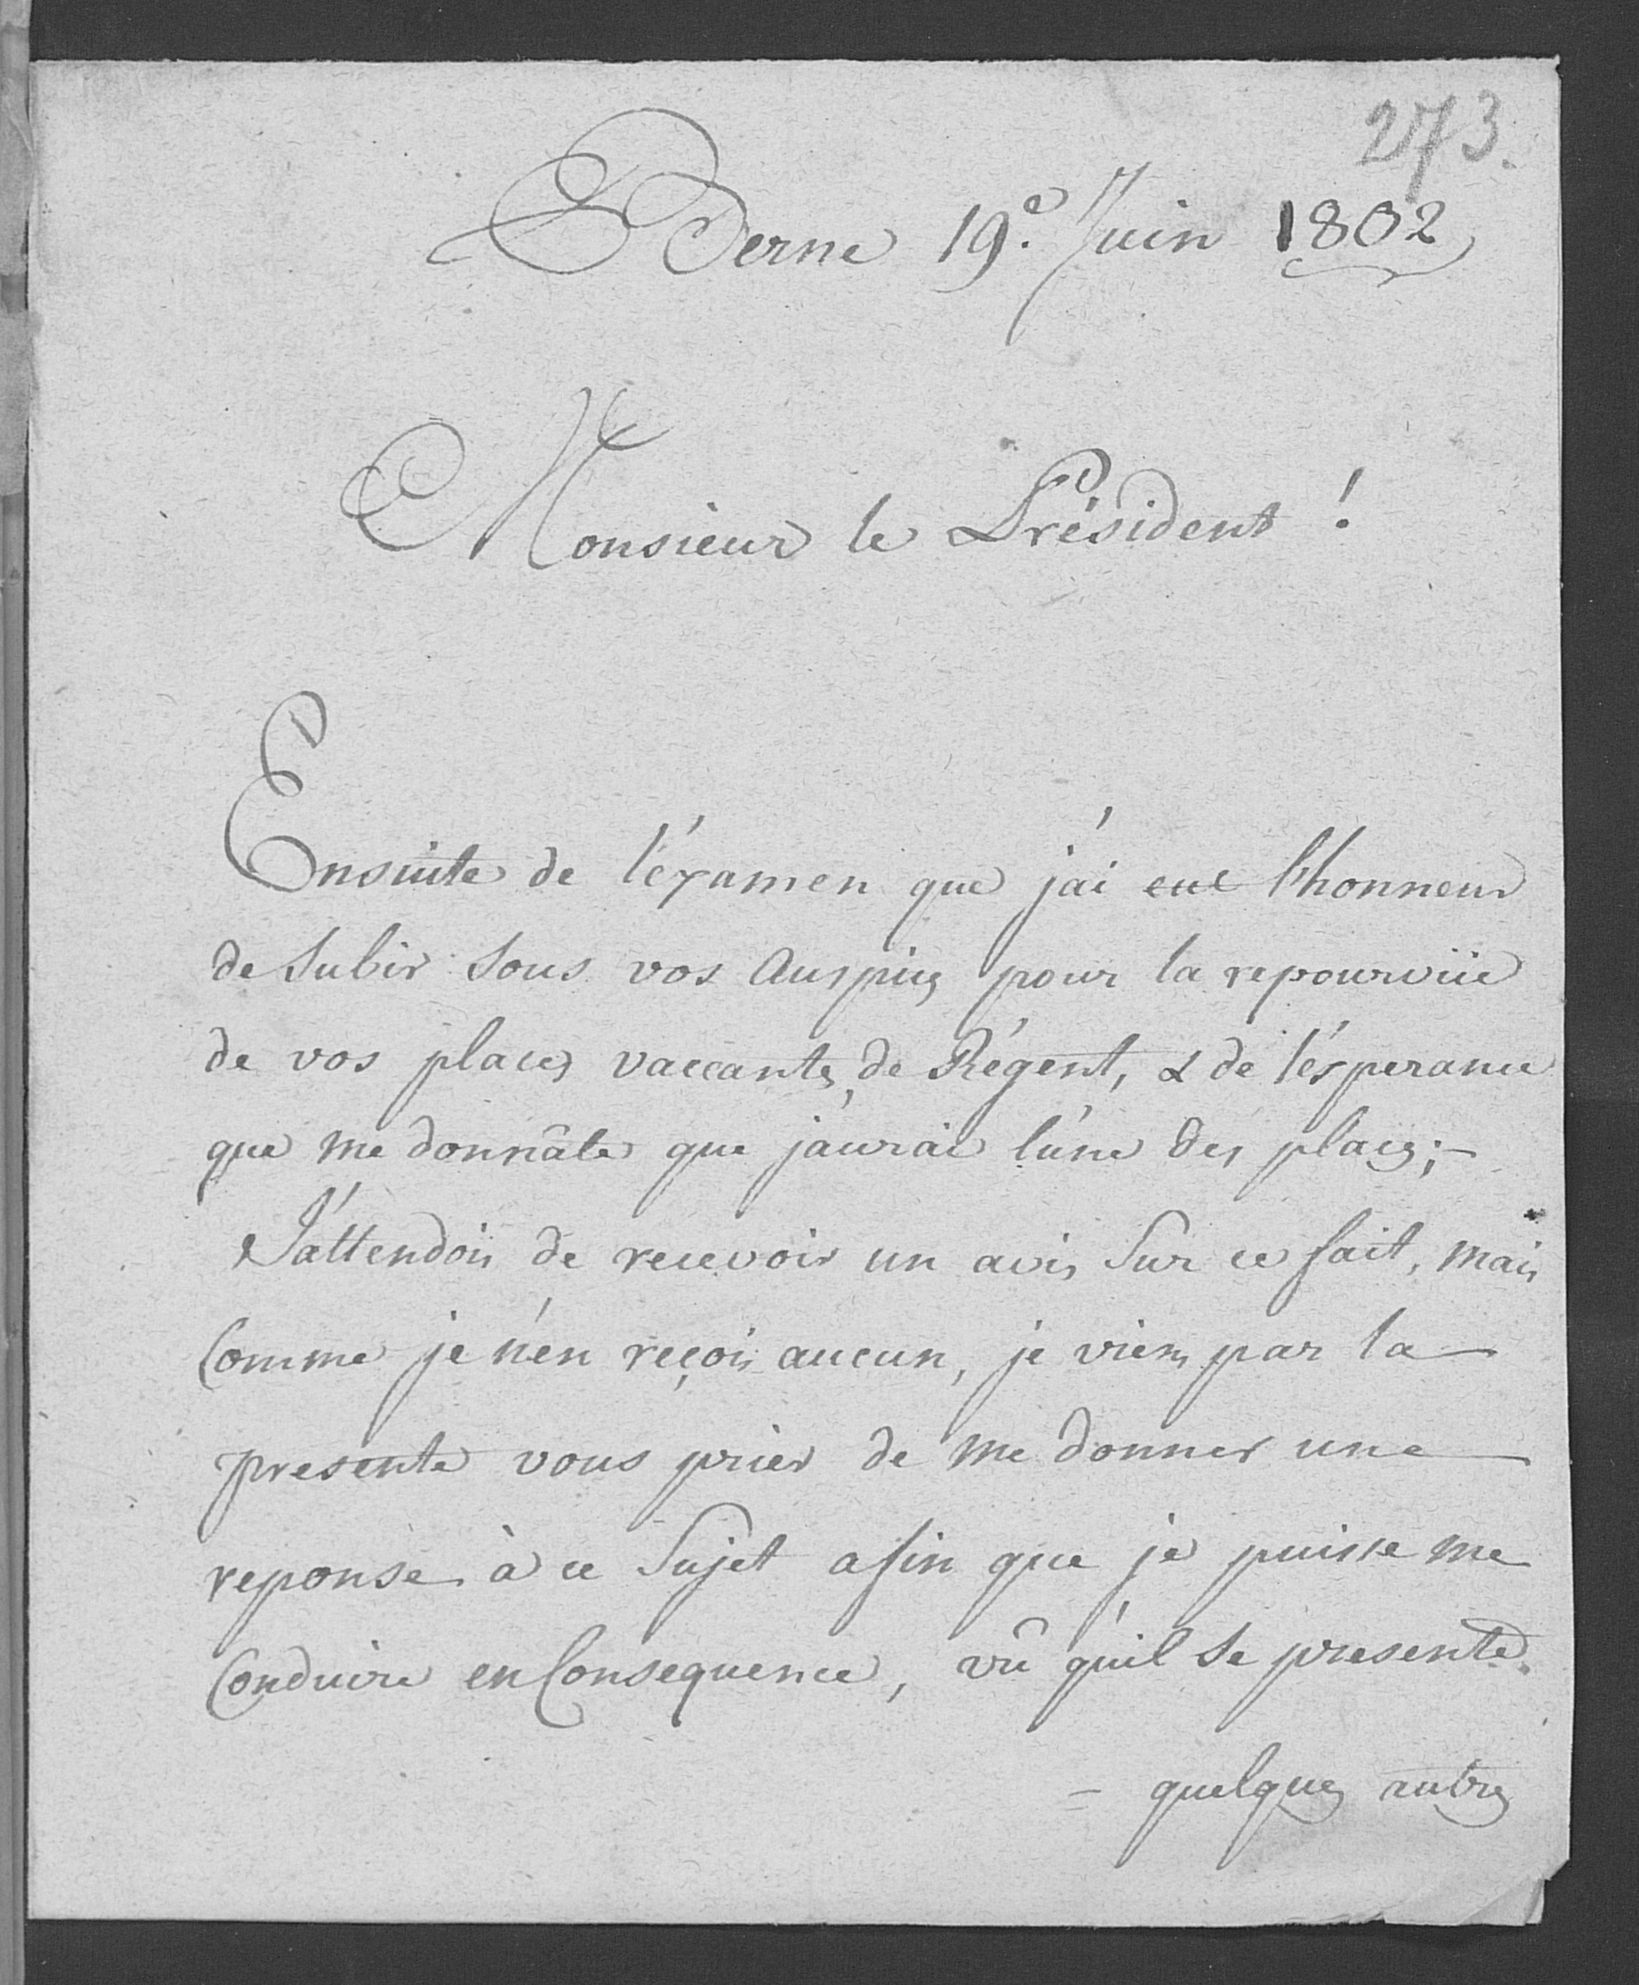 273.
Berne 19.e Juin 1802
Monsieur le Président !
Ensuite de l'éxamen que j'ai eue l'honneur
de Subir Sous vos Auspices pour la repourvüe
de vos places vaccantes de Régent, & de l'ésperance
que me donnâte que j'aurai l'une des places;-
J'attendois de recevoir un avis Sur ce fait, mais
Comme je n'en reçois aucun, je viens par la -
presente vous prier de me donner une -
reponse à ce Sujet afin que je puisse me
Conduire en Consequence, vû qu'il Se presente
- quelques autres